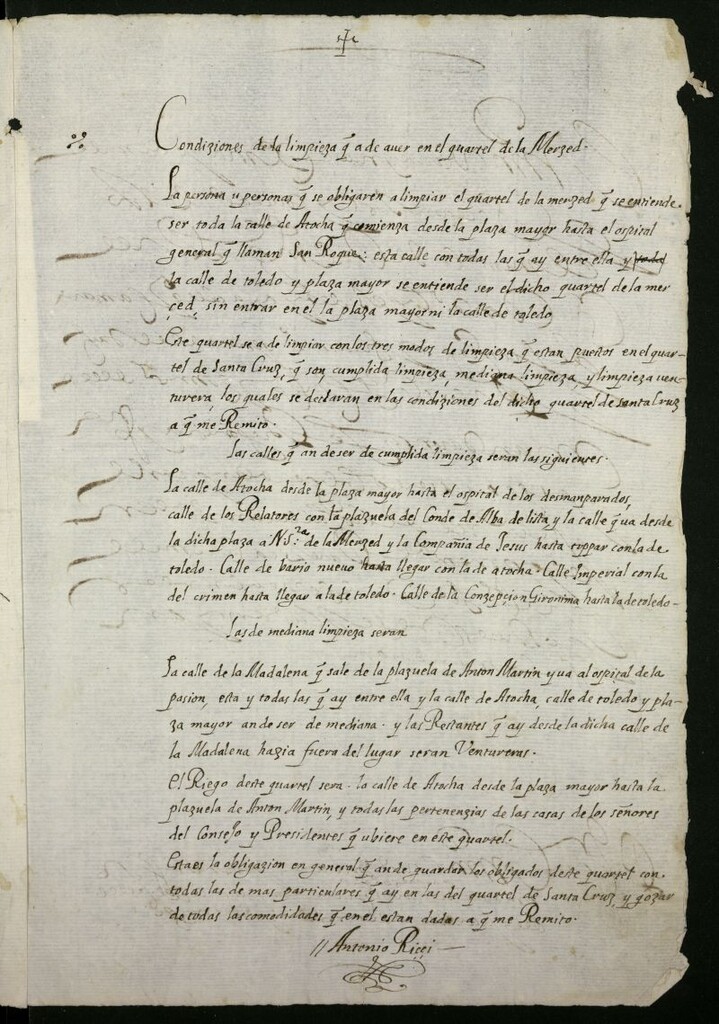 Condiziones de la limpieza q̃ a de auer en el quartel de la Merzed.
La persona u personas q̃ se obligaren a limpiar el quartel de la merzed q̃ se entiende
ser toda la calle de Atocha q̃ comienza desde la plaza mayor hasta el ospital
general q̃ llaman San Roque: esta calle con todas las q̃ ay entre ella y
la calle de toledo y plaza mayor se entiende ser el dicho quartel de la mer
ced, sin entrar en el la plaza mayor ni la calle de toledo
Este quartel se a de limpiar con los tres modos de limpieza q̃ estan puestos en el quar-
tel de Santa Cruz, q̃ son, cumplida limpieza, mediana limpieza, y limpieza ven-
turera, los quales se declaran en las condiziones del dicho quartel de santa Cruz
a q̃ me Remito.
Las calles q̃ an de ser de cumplida limpieza seran las siguientes.
La calle de Atocha desde la plaza mayor hasta el ospital de los desmanparados,
calle de los Relatores con la plazuela del Conde de Alba de lista, y la calle q̃ ua desde
la dicha plaza a N. S.ra de la Merzed y la Compañia de Jesus hasta toppar con la de
toledo. Calle de bario nuevo hasta llegar con la de atocha. Calle Imperial con la
del crimen hasta llegar a la de toledo. Calle de la Conzepçion Gironima hasta la de toledo-
Las de mediana limpieza seran
La calle de la Madalena q̃ sale de la plazuela de Anton Martin y ua al ospital de la
pasion, esta y todas las q̃ ay entre ella y la calle de Atocha, calle de toledo y pla-
za mayor an de ser de mediana. y las Restantes q̃ ay desde la dicha calle de
la Madalena hazia fuera del lugar seran Ventureras.
El Riego deste quartel sera. la calle de Atocha desde la plaza mayor hasta la
plazuela de Anton Martin, y todas las pertenenzias de las casas de los señores
del Consejo y Presidentes q̃ ubiere en este quartel.
Esta es la obligazion en general q̃ an de guardar los obligados deste quartel con
todas las de mas particulares q̃ ay en las del quartel de Santa Cruz, y gozar
de todas las comodidades q̃ en el estan dadas a q̃ me Remito.
// Antonio Riçci